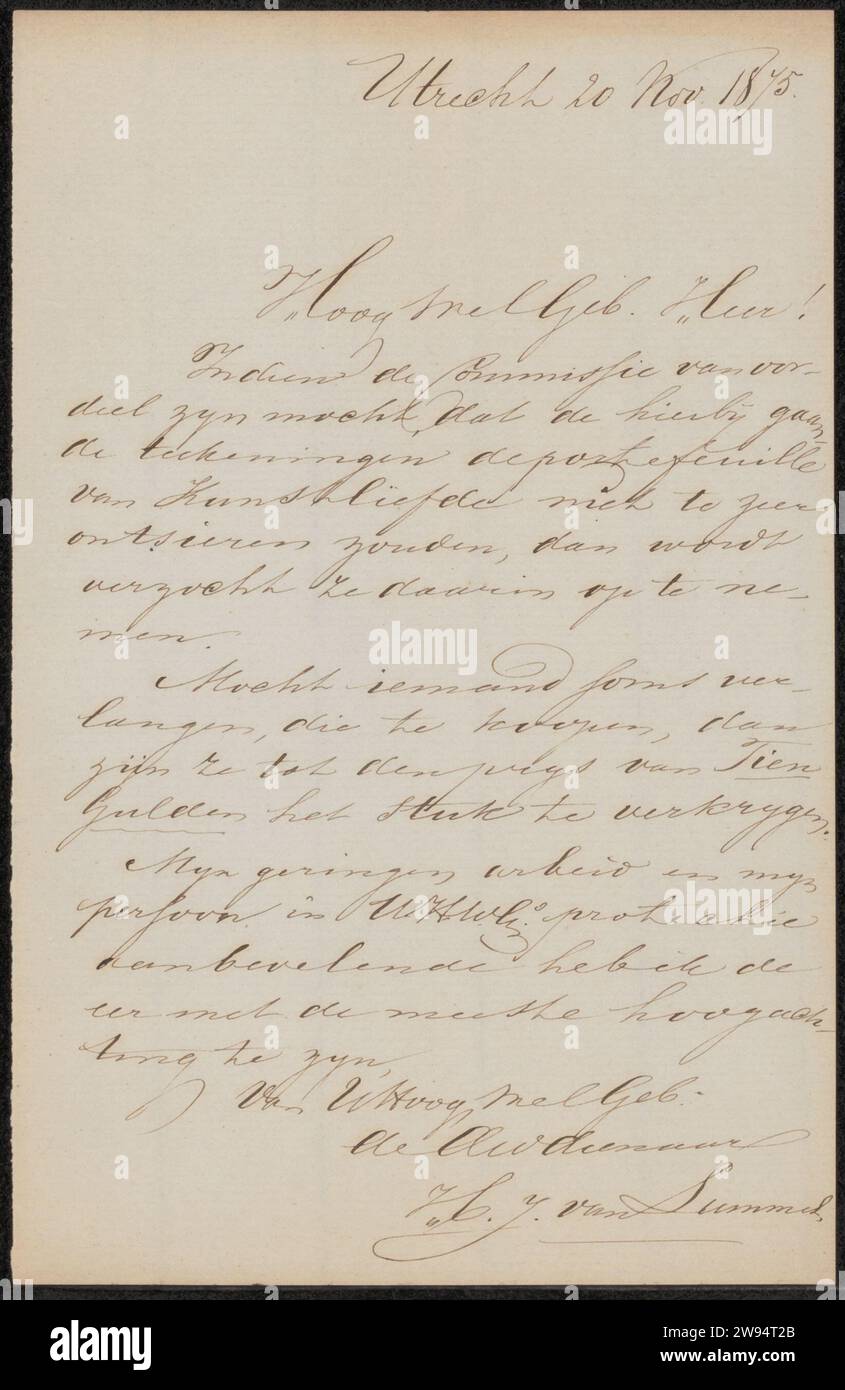 Utrecht 20 Nov. 1875.
HoogWelGeb. Heer!
Indien de Commissie van oor-
deel zyn mocht, dat de hierbij gaan-
de teekeningen de portefeuille
van Kunstliefde niet te zeer
ontsieren zouden, dan wordt
verzocht ze daarin op te ne-
men.
Mocht iemand soms ver-
langen, die te koopen, dan
zijn ze tot den prys van Tien
Gulden het stuk te verkrygen.
Myn geringen arbeid en myn
persoon in UHWG.s protectie
aanbevelende heb ik de
eer met de meeste hoogach-
ting te zyn,
Van UHoogWelGeb.
de Dw dienaar
H. J. van Lummel.
alamy
Image ID: 2W94T2B
www.alamy.com